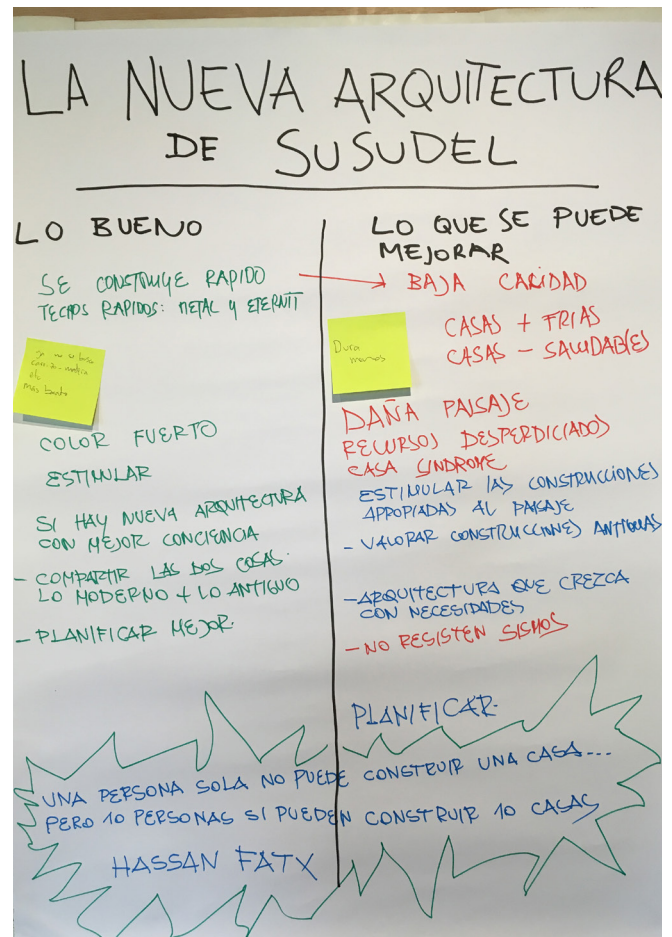 LA NUEVA ARQUITECTURA
DE SUSUDEL
LO BUENO
SE CONSTRUYE RAPIDO
TECHOS RAPIDOS: METAL Y ETERNIT
COLOR FUERTO
ESTIMULAR
SI HAY NUEVA ARQUITECTURA
CON MEJOR CONCIENCIA
- COMPARTIR LAS DOS COSAS.
LO MODERNO + LO ANTIGUO
- PLANIFICAR MEJOR.
LO QUE SE PUEDE
MEJORAR
BAJA CALIDAD
CASAS + FRIAS
CASAS - SALUDABLES
Dura
menos
DAÑA PAISAJE
RECURSOS DESPERDICIADOS
CASA SINDROME
ESTIMULAR LAS CONSTRUCCIONES
APPOPIADAS AL PAISAJE
- VALORAR CONSTRUCCIONES ANTIGUAS
- ARQUITECTURA QUE CREZCA
CON NECESIDADES
- NO RESISTEN SISMOS
PLANIFICAR.
UNA PERSONA SOLA NO PUEDE CONSTRUIR UNA CASA...
PERO 10 PERSONAS SI PUEDEN CONSTRUIR 10 CASAS
HASSAN FATX